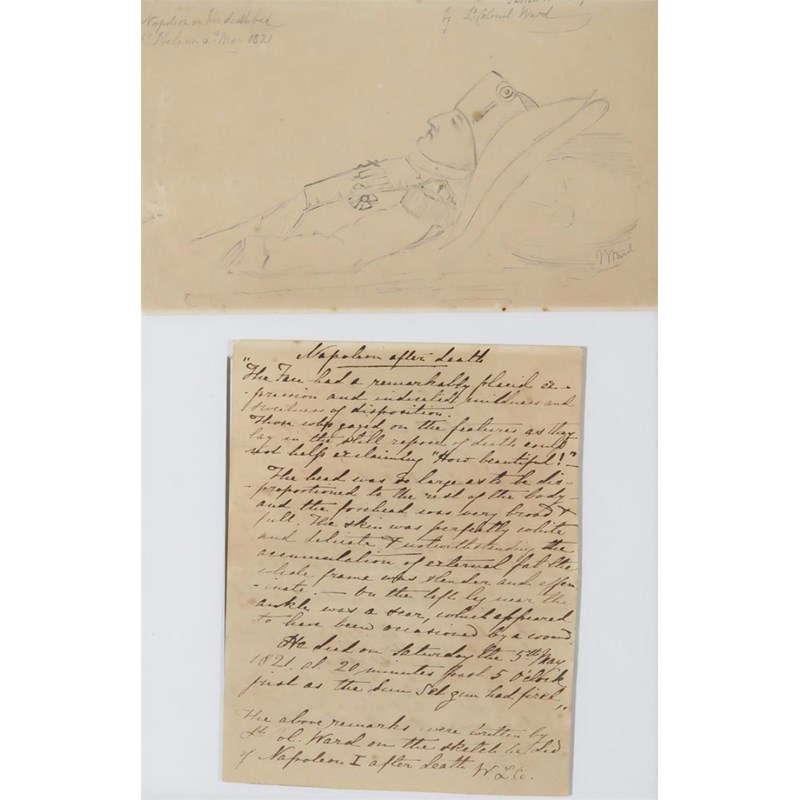 Napoleon on his deathbed
St Helena 5th May 1821
by Lt. Colonel Ward
Ward
Napoleon after death
"The Face had a remarkably placid ex-
-pression and indicated mildness and
sweetness of disposition.
Those who gazed on the features as they
lay in the still repose of death could
not help exclaiming "How beautiful!" –
The head was so large as to be dis-
-proportioned to the rest of the body –
and the forehead was very broad &
full. The skin was perfectly white
and delicate & notwithstanding the
accumulation of external fat the
whole frame was slender and effem
-inate. – On the left leg near the
ankle was a scar, which appeared
to have been occasioned by a wound.
He died on Saturday the 5th May
1821. at 20 minutes past 5 O'clock
just as the Sun Set gun had fired,,
The above remarks were written by
Lt. Col. Ward on the sketch he did
of Napoleon I after death